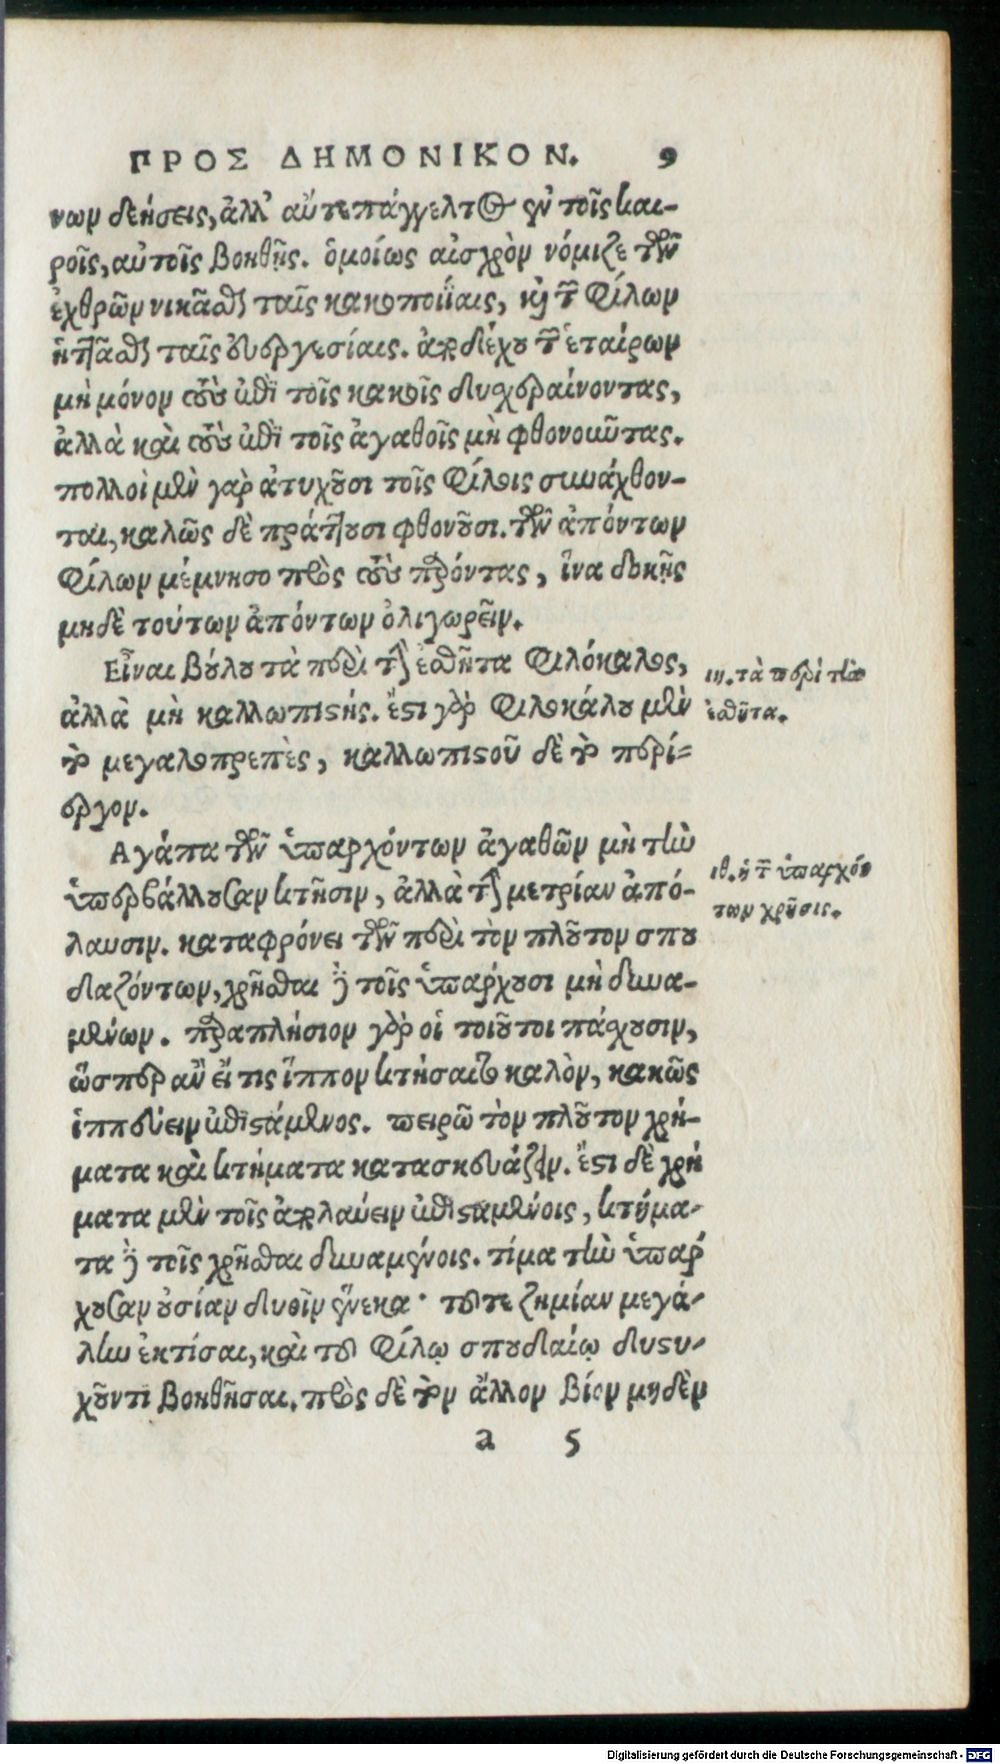 ΠΡΟΣ ΔΗΜΟΝΙΚΟΝ. 9
νων δεήσεις, ἀλλ' αὐτεπάγγελτος ἐν τοῖς και-
ροῖς, αὐτοῖς βοηθῇς. ὁμοίως αἰσχρὸν νόμιζε τῶν
ἐχθρῶν νικᾶσθαι ταῖς κακοποιΐαις, καὶ τῶν φίλων
ἡττᾶσθαι ταῖς εὐεργεσίαις. ἀποδέχου τῶν ἑταίρων
μὴ μόνον τοὺς ἐπὶ τοῖς κακοῖς δυσχεραίνοντας,
ἀλλὰ καὶ τοὺς ἐπὶ τοῖς ἀγαθοῖς μὴ φθονοῦντας.
πολλοὶ μὲν γὰρ ἀτυχοῦσι τοῖς φίλοις συνάχθον-
ται, καλῶς δὲ πράττουσι φθονοῦσι. τῶν ἀπόντων
φίλων μέμνησο πρὸς τοὺς παρόντας, ἵνα δοκῇς
μηδὲ τούτων ἀπόντων ὀλιγωρεῖν.
Εἶναι βούλου τὰ περὶ τὴν ἐσθῆτα φιλόκαλος,
ἀλλὰ μὴ καλλωπιστής. ἔστι γὰρ φιλοκάλου μὲν
τὸ μεγαλοπρεπὲς, καλλωπιστοῦ δὲ τὸ περί-
εργον.
Αγάπα τῶν ὑπαρχόντων ἀγαθῶν μὴ τὴν
ὑπερβάλλουσαν κτῆσιν, ἀλλὰ τὴν μετρίαν ἀπό-
λαυσιν. καταφρόνει τῶν περὶ τὸν πλοῦτον σπου
δαζόντων, χρῆσθαι δὲ τοῖς ὑπάρχουσι μὴ δυνα-
μένων. παραπλήσιον γὰρ οἱ τοιοῦτοι πάσχουσιν,
ὥσπερ ἂν εἴ τις ἵππον κτήσαιτο καλὸν, κακῶς
ἱππεύειν ἐπιστάμενος. πειρῶ τὸν πλοῦτον χρή-
ματα καὶ κτήματα κατασκευάζειν. ἔστι δὲ χρή
ματα μὲν τοῖς ἀπολαύειν ἐπισταμένοις, κτήμα-
τα δὲ τοῖς χρῆσθαι δυναμένοις. τίμα τὴν ὑπάρ
χουσαν οὐσίαν δυοῖν ἕνεκα· τοῦ τε ζημίαν μεγά-
λην ἐκτίσαι, καὶ τοῦ φίλῳ σπουδαίῳ δυστυ-
χοῦντι βοηθῆσαι. πρὸς δὲ τὸν ἄλλον βίον μηδὲν
a 5
ιη. τὰ περὶ τὴν
ἐσθῆτα.
ιθ. ἡ τῶν ὑπαρχόν
των χρῆσις.
Digitalisierung gefördert durch die Deutsche Forschungsgemeinschaft - DFG